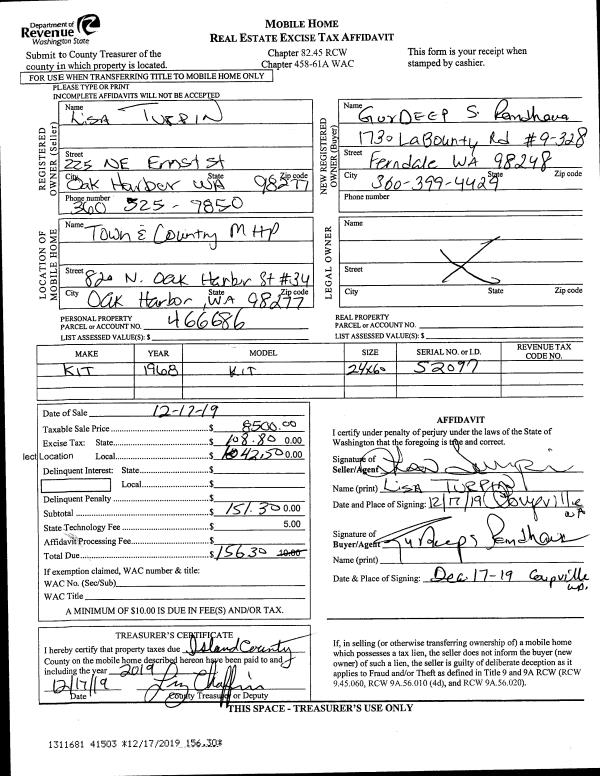 Department of
Revenue
Washington State
MOBILE HOME
REAL ESTATE EXCISE TAX AFFIDAVIT
Submit to County Treasurer of the
county in which property is located.
Chapter 82.45 RCW
Chapter 458-61A WAC
This form is your receipt when
stamped by cashier.
FOR USE WHEN TRANSFERRING TITLE TO MOBILE HOME ONLY
PLEASE TYPE OR PRINT
INCOMPLETE AFFIDAVITS WILL NOT BE ACCEPTED
REGISTERED
OWNER (Seller)
Name
LISA TURPIN
Street
225 NE Ernst St
City State Zip code
Oak Harbor WA 98277
Phone number
360 325-9850
NEW REGISTERED
OWNER (Buyer)
Name
GurDEEP S. Randhawa
1730 LaBounty Rd #9-328
Street
Ferndale WA 98248
City State Zip code
360-399-4429
Phone number
LOCATION OF
MOBILE HOME
Name
Town & Country MHP
Street
820 N. Oak Harbor St #34
City State Zip code
Oak Harbor, WA 98277
LEGAL OWNER
Name
X
Street
City State Zip code
PERSONAL PROPERTY
PARCEL or ACCOUNT NO. 466686
LIST ASSESSED VALUE(S): $
REAL PROPERTY
PARCEL or ACCOUNT NO.
LIST ASSESSED VALUE(S): $
MAKE YEAR MODEL SIZE SERIAL NO. or I.D. REVENUE TAX CODE NO.
KIT 1968 KIT 24x60 S2097
Date of Sale 12-17-19
Taxable Sale Price $ 8500.00
Excise Tax: State $ 108.80 0.00
lect Location Local $ 42.50 0.00
Delinquent Interest: State $
Local $
Delinquent Penalty $
Subtotal $ 151.30 0.00
State Technology Fee $ 5.00
Affidavit Processing Fee $
Total Due $ 156.30 10.00
If exemption claimed, WAC number & title:
WAC No. (Sec/Sub)
WAC Title
A MINIMUM OF $10.00 IS DUE IN FEE(S) AND/OR TAX.
AFFIDAVIT
I certify under penalty of perjury under the laws of the State of
Washington that the foregoing is true and correct.
Signature of
Seller/Agent
Name (print) LISA TURPIN
Date and Place of Signing: 12/17/19 Coupville
WA
Signature of
Buyer/Agent Gurdeep S Randhawa
Name (print)
Date & Place of Signing: Dec 17-19 Coupville
WA.
TREASURER'S CERTIFICATE
I hereby certify that property taxes due Island County
County on the mobile home described hereon have been paid to and
including the year 2019
12/17/19
Date County Treasurer or Deputy
If, in selling (or otherwise transferring ownership of) a mobile home
which possesses a tax lien, the seller does not inform the buyer (new
owner) of such a lien, the seller is guilty of deliberate deception as it
applies to Fraud and/or Theft as defined in Title 9 and 9A RCW (RCW
9.45.060, RCW 9A.56.010 (4d), and RCW 9A.56.020).
THIS SPACE - TREASURER'S USE ONLY
1311681 41503 *12/17/2019 156.30*